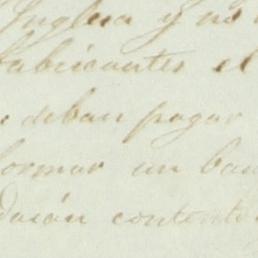 Inglesa y no
fabricantes el
deban pagar
formar un ban
darán content